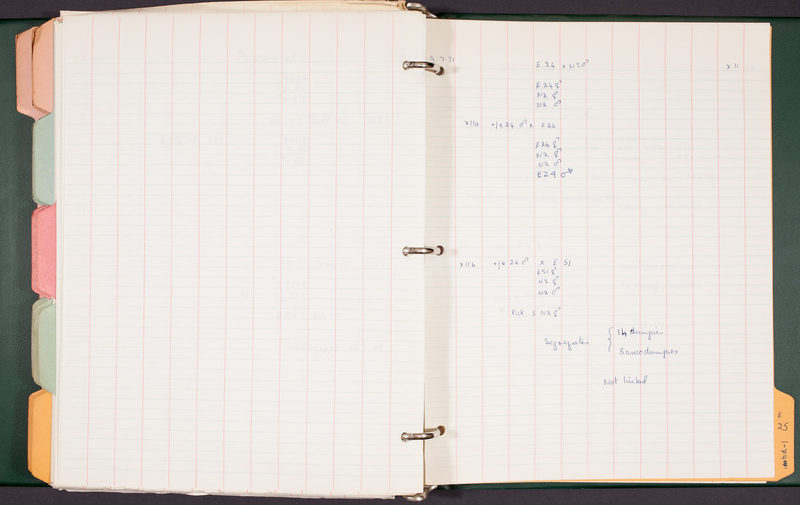 E 24 x N2 ♂ X 11
E24 ⚥
N2 ⚥
N2 ♂
X11a +/e 24 ♂ x E24
E24 ⚥
N2 ⚥
N2 ♂
E24 ♂
X11b +/e 24 ♂ x E 51
E51 ⚥
N2 ⚥
N2 ♂
Pick 5 N2 ⚥
Segregates { 14 dumpies
6 uncodumpies
Not linked
E
25